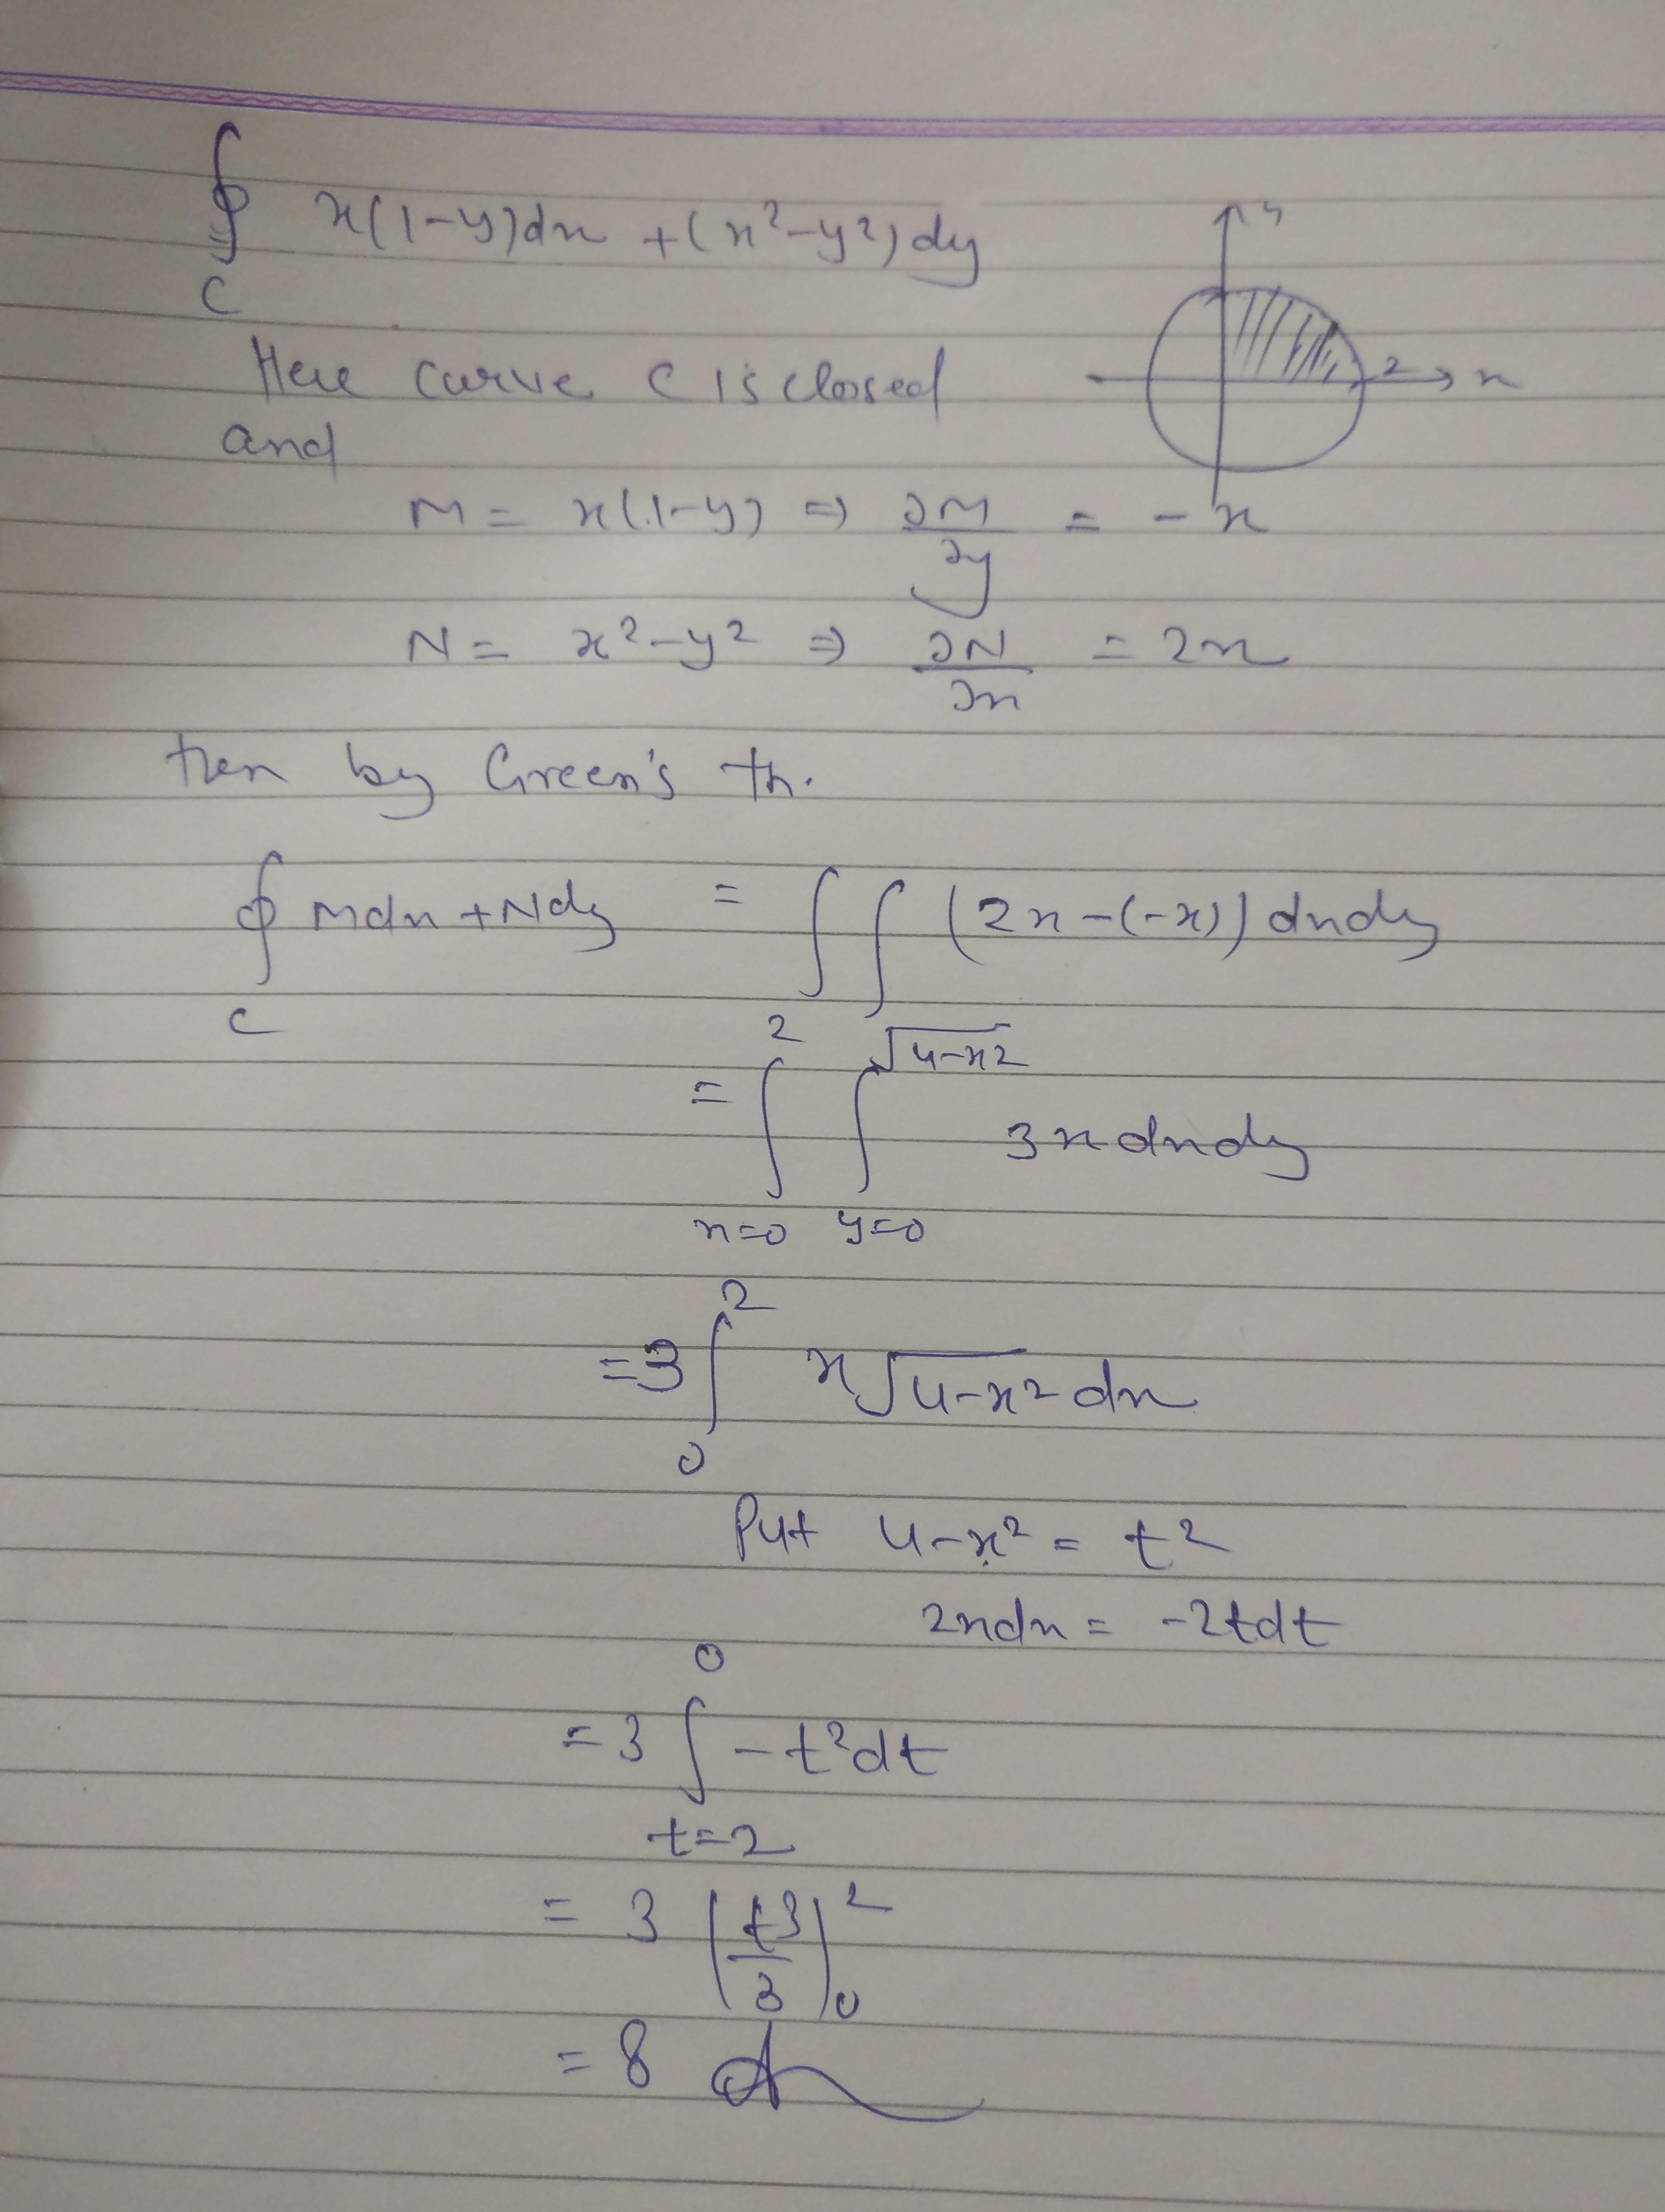 ∮ x(1-y)dx + (x²-y²)dy
C
y
2 x
Here curve C is clossed
and
M = x(1-y) ⇒ ∂M/∂y = -x
N = x²-y² ⇒ ∂N/∂x = 2x
then by Green's th.
∮ Mdx + Ndy = ∫∫ (2x-(-x)) dxdy
C
2 √4-x²
= ∫ ∫ 3x dxdy
x=0 y=0
2
=3 ∫ x√4-x² dx
0
Put 4-x² = t²
2xdx = -2tdt
0
= 3 ∫ -t²dt
t=2
= 3 (t3/3)²₀
= 8